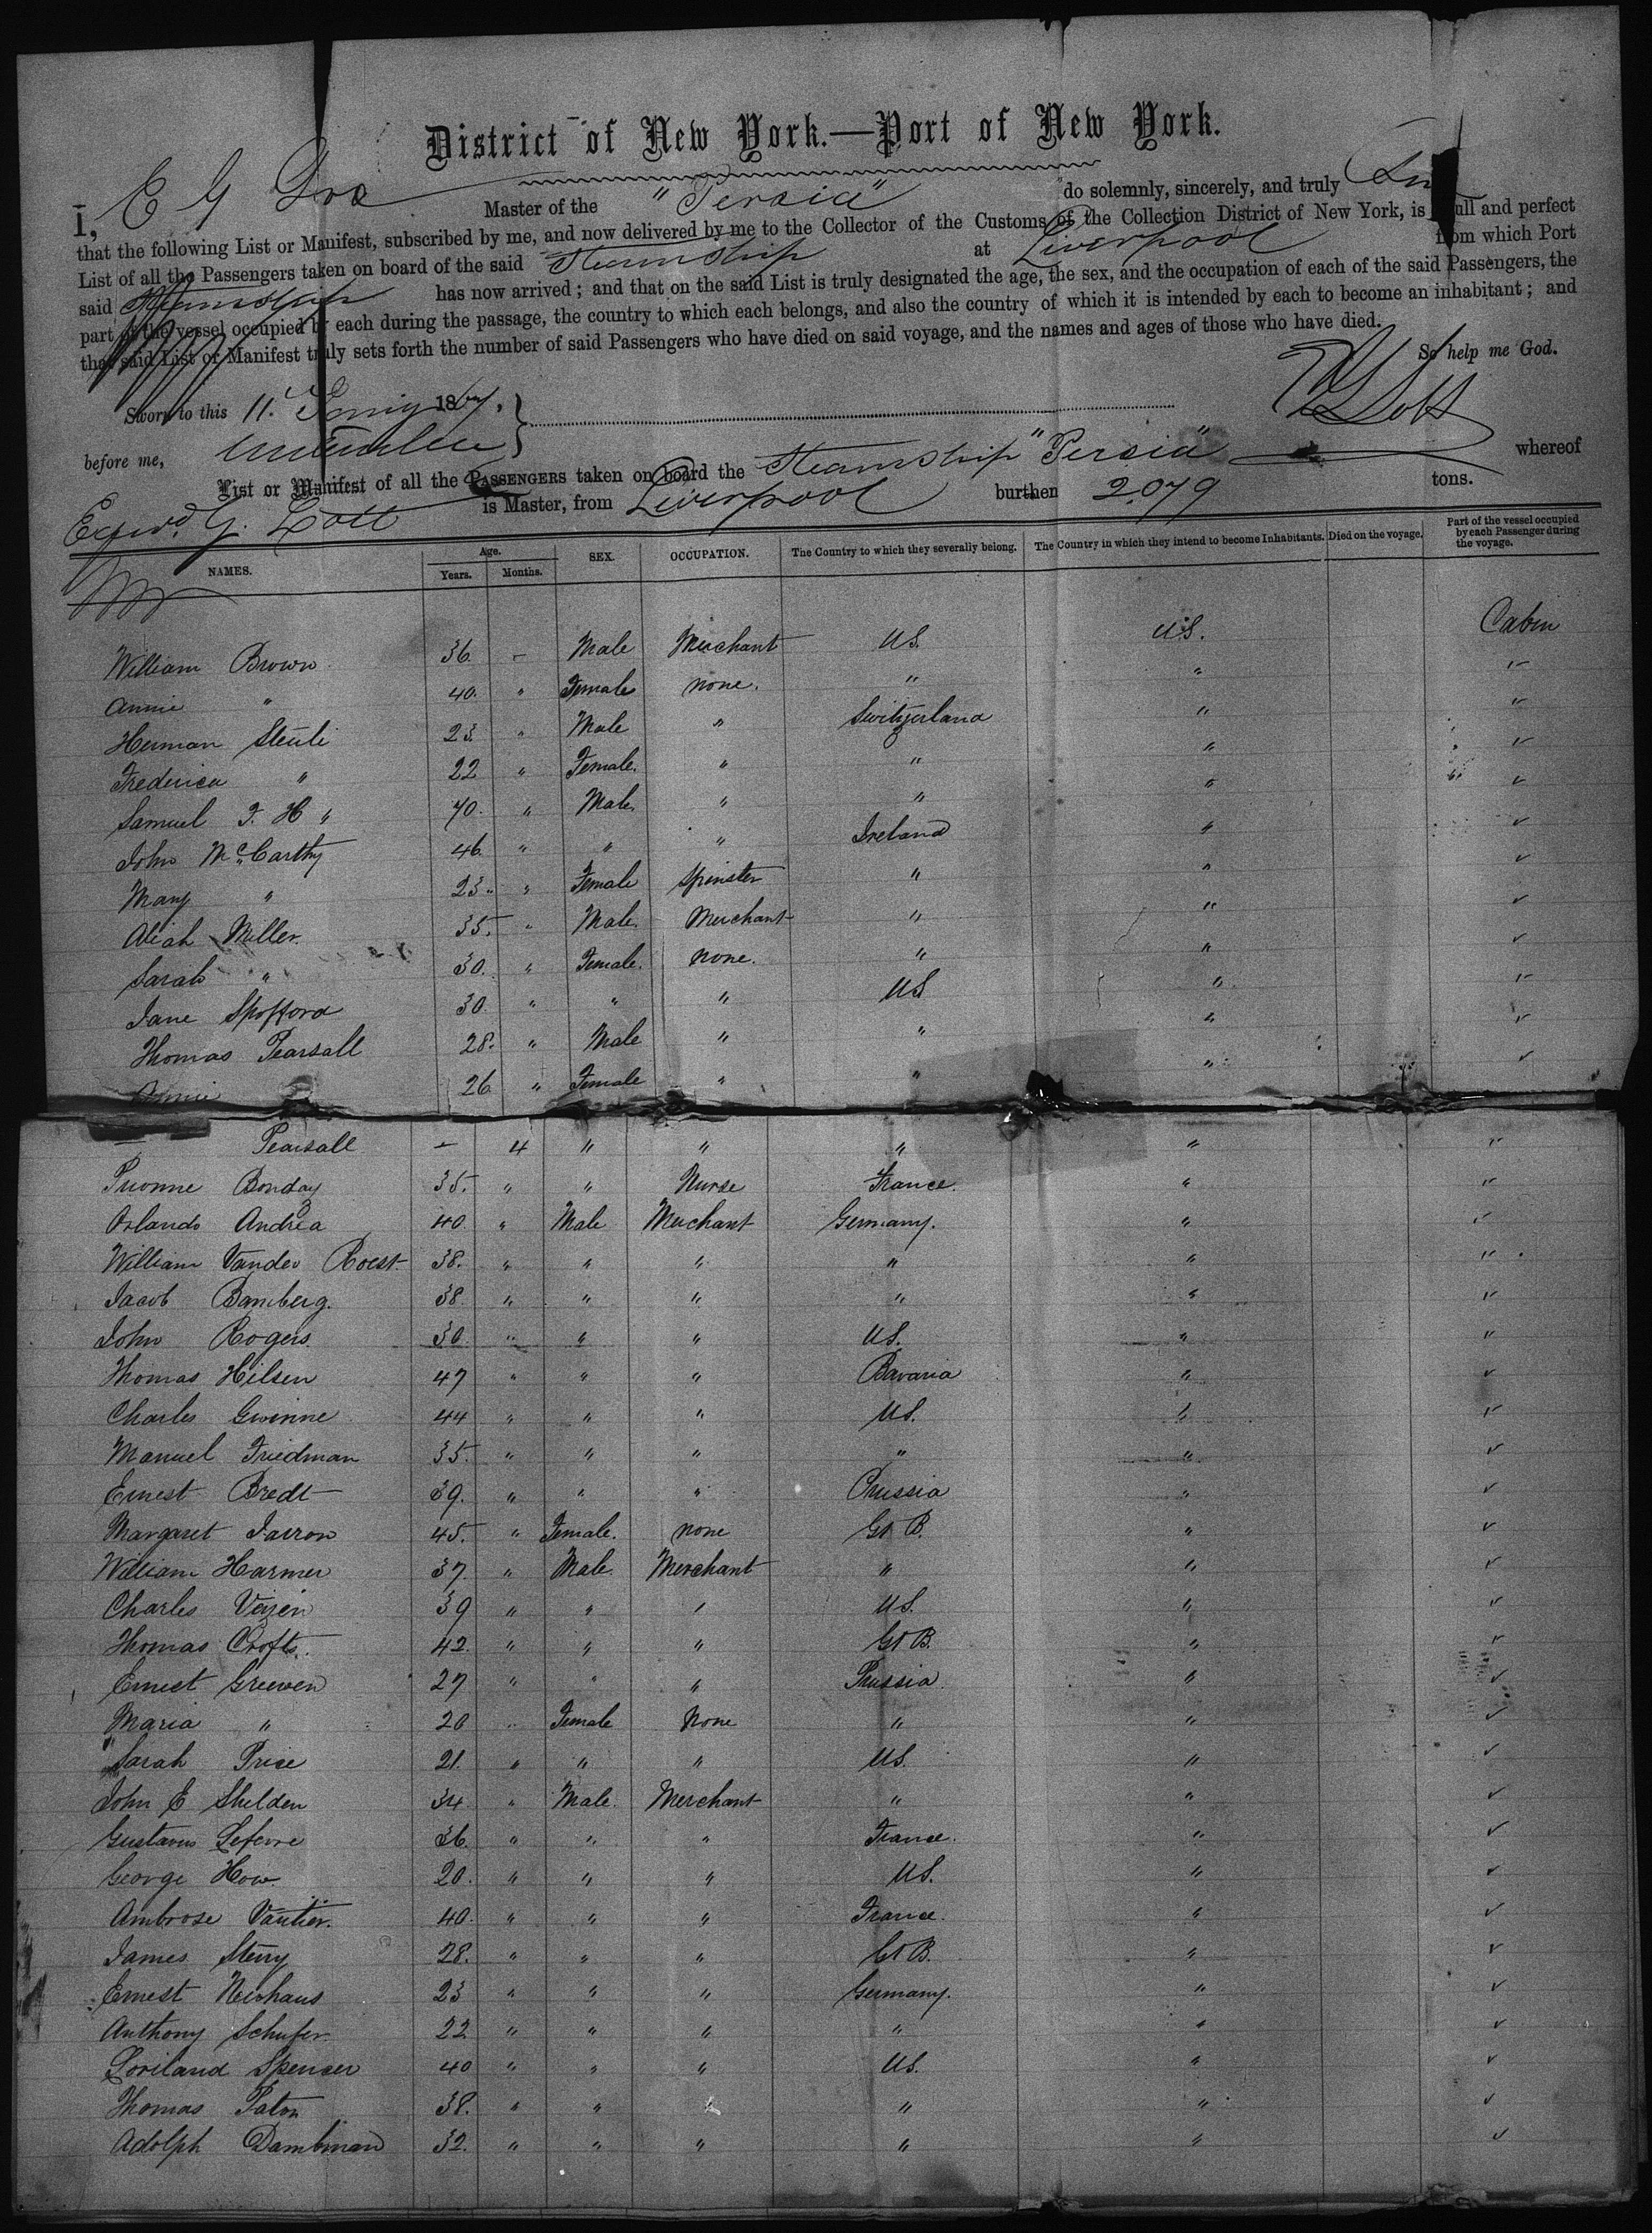 District of New York.—Port of New York.
I, E G Master of the "Persia" do solemnly, sincerely, and truly
that the following List or Manifest, subscribed by me, and now delivered by me to the Collector of the Customs of the Collection District of New York, is full and perfect
List of all the Passengers taken on board of the said Steamship at Liverpool from which Port
said Steamship has now arrived; and that on the said List is truly designated the age, the sex, and the occupation of each of the said Passengers, the
part of the vessel occupied by each during the passage, the country to which each belongs, and also the country of which it is intended by each to become an inhabitant; and
that said List or Manifest truly sets forth the number of said Passengers who have died on said voyage, and the names and ages of those who have died.
So help me God.
Sworn to this 11. 186
before me,
List or Manifest of all the PASSENGERS taken on board the Steamship "Persia" whereof
G. Lott is Master, from Liverpool burthen 2079 tons.
NAMES. Age. Years. Months. SEX. OCCUPATION. The Country to which they severally belong. The Country in which they intend to become Inhabitants. Died on the voyage. Part of the vessel occupied by each Passenger during the voyage.
William Brown 36. - Male Merchant US. US. Cabin
Annie " 40. " Female none. " " "
Herman Steuli 23. " Male " Switzerland " "
Frederica " 22 " Female. " " " "
Samuel F. H " 70. " Male. " " " "
John McCarthy 46. " " " Ireland " "
Mary " 23. " Female Spinster " " "
Miller. 35. " Male. Merchant " " "
Sarah " 30. " Female. none. " " "
Jane Spofford 30. " " " US " "
Thomas Pearsall 28. " Male " " " "
Annie 26 " Female " " " "
— Pearsall - 4 " " " " "
Bonday 35. " " Nurse France. " "
Orlando Andrea 40. " Male Merchant Germany. " "
William Vander Roest 38. " " " " " "
Jacob Bamberg. 38. " " " " " "
John Rogers. 30. " " " US. " "
Thomas Hilsen 47 " " " Bavaria " "
Charles Gwinne 44 " " " US. " "
Manuel Friedman 35. " " " " " "
Ernest Bredt 39. " " " Prussia " "
Margaret 45. " Female. none Gt B. " "
William Harmer 37. " Male. Merchant " " "
Charles 39 " " " US. " "
Thomas Crofts. 42. " " " Gt B. " "
Ernest Greeven 27 " " " Prussia " "
Maria " 20 " Female None " " "
Sarah Price 21. " " " US. " "
John E Shelden 34. " Male. Merchant " " "
Gustavus Lefevre 36. " " " France. " "
George How. 20. " " " US. " "
Ambrose Vautier. 40. " " " France. " "
James Sterry 28. " " " Gt B. " "
Ernest Neuhaus 23 " " " Germany. " "
Anthony Schufer. 22 " " " " " "
Loriland Spencer 40 " " " US. " "
Thomas Paton 38. " " " " " "
Adolph Dambman 32. " " " " " "